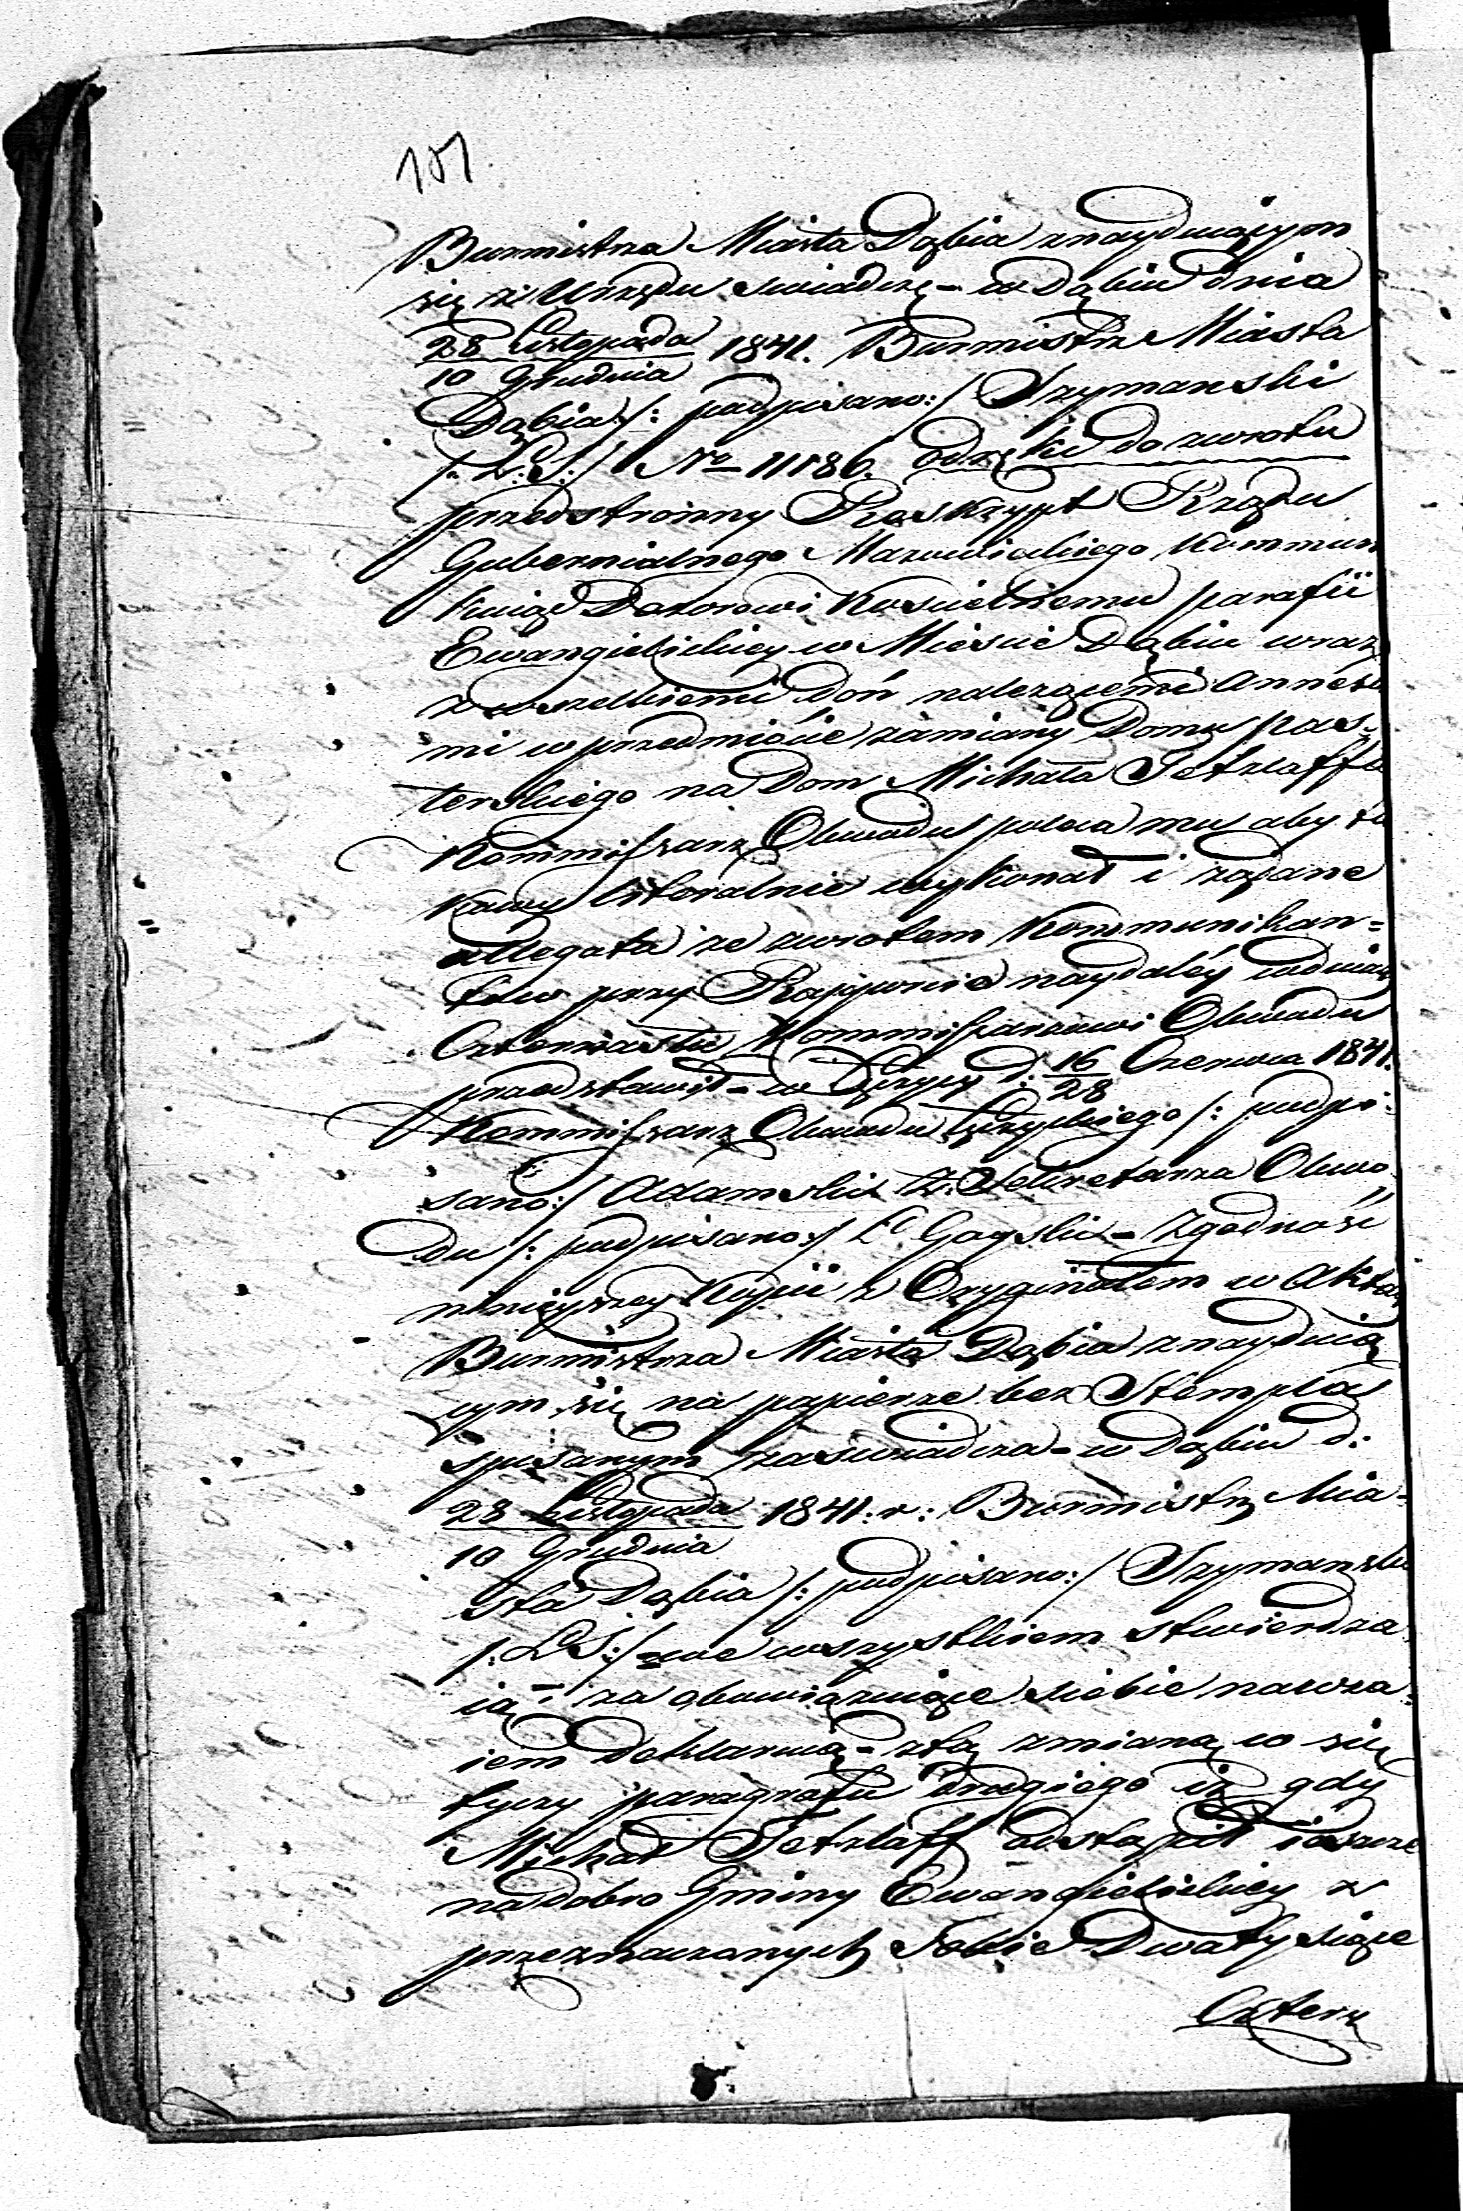 101.
Burmistrza Miasta Dąbia znayduiącym
się z Urzędu swiadczę - w Dąbiu dnia
28 Listopada 1841. Burmistrz Miasta
10 Grudnia
Dąbia /: podpisano :/ Szymanski
/: L: S: :/ No 11186. odręka do zwrotu
przedstronny Reskrypt Rządu
Gubernialnego Mazowieckiego kommuni
kuiąc Dozorowi Koscielnemu parafii
Ewangielickiey w Miescie Dąbiu wraz
z wszelkiemi doń należącemi Annexa
mi w przedmiocie zamiany Domu pas-
terskiego na Dom Michała Tetzlaffa
Kommissarz Obwodu poleca mu aby ta
kowy literalnie wykonał i żądane
allegata ze zwrotem kommunikan=
tów przy Rapporcie naydaléy w dniach
Czternastu Kommissarzowi Obwodu
przedstawił - w Łęczycy d: 16/28 Czerwca 1841.
Kommissarz Obwodu Łęczyckiego /: podpi-
sano :/ Adamski Z: Sekretarza Obwo-
du /: podpisano :/ Gayski - Zgodność
ninieyszey Kopii z Oryginałem w Aktach
Burmistrza Miasta Dąbia znayduią
cym się na papierze bez Stempla
spisanym zaswiadcza - w Dąbiu d:
28 Listopada 1841: r: Burmistrz Mia-
10 Grudnia
sta Dąbia /: podpisano :/ Szymanski
/: L S: :/ - we wszystkiem stwierdza
ią i za obowiązuiące siebie nawza-
iem deklaruią - z tą zmianą co się
tyczy paragrafu drugiego iż gdy
Michał Tetzlaff odstąpił ieszcze
na dobro Gminy Ewangielickiey z
przeznaczonych Sobie Dwa tysiące
Cztery